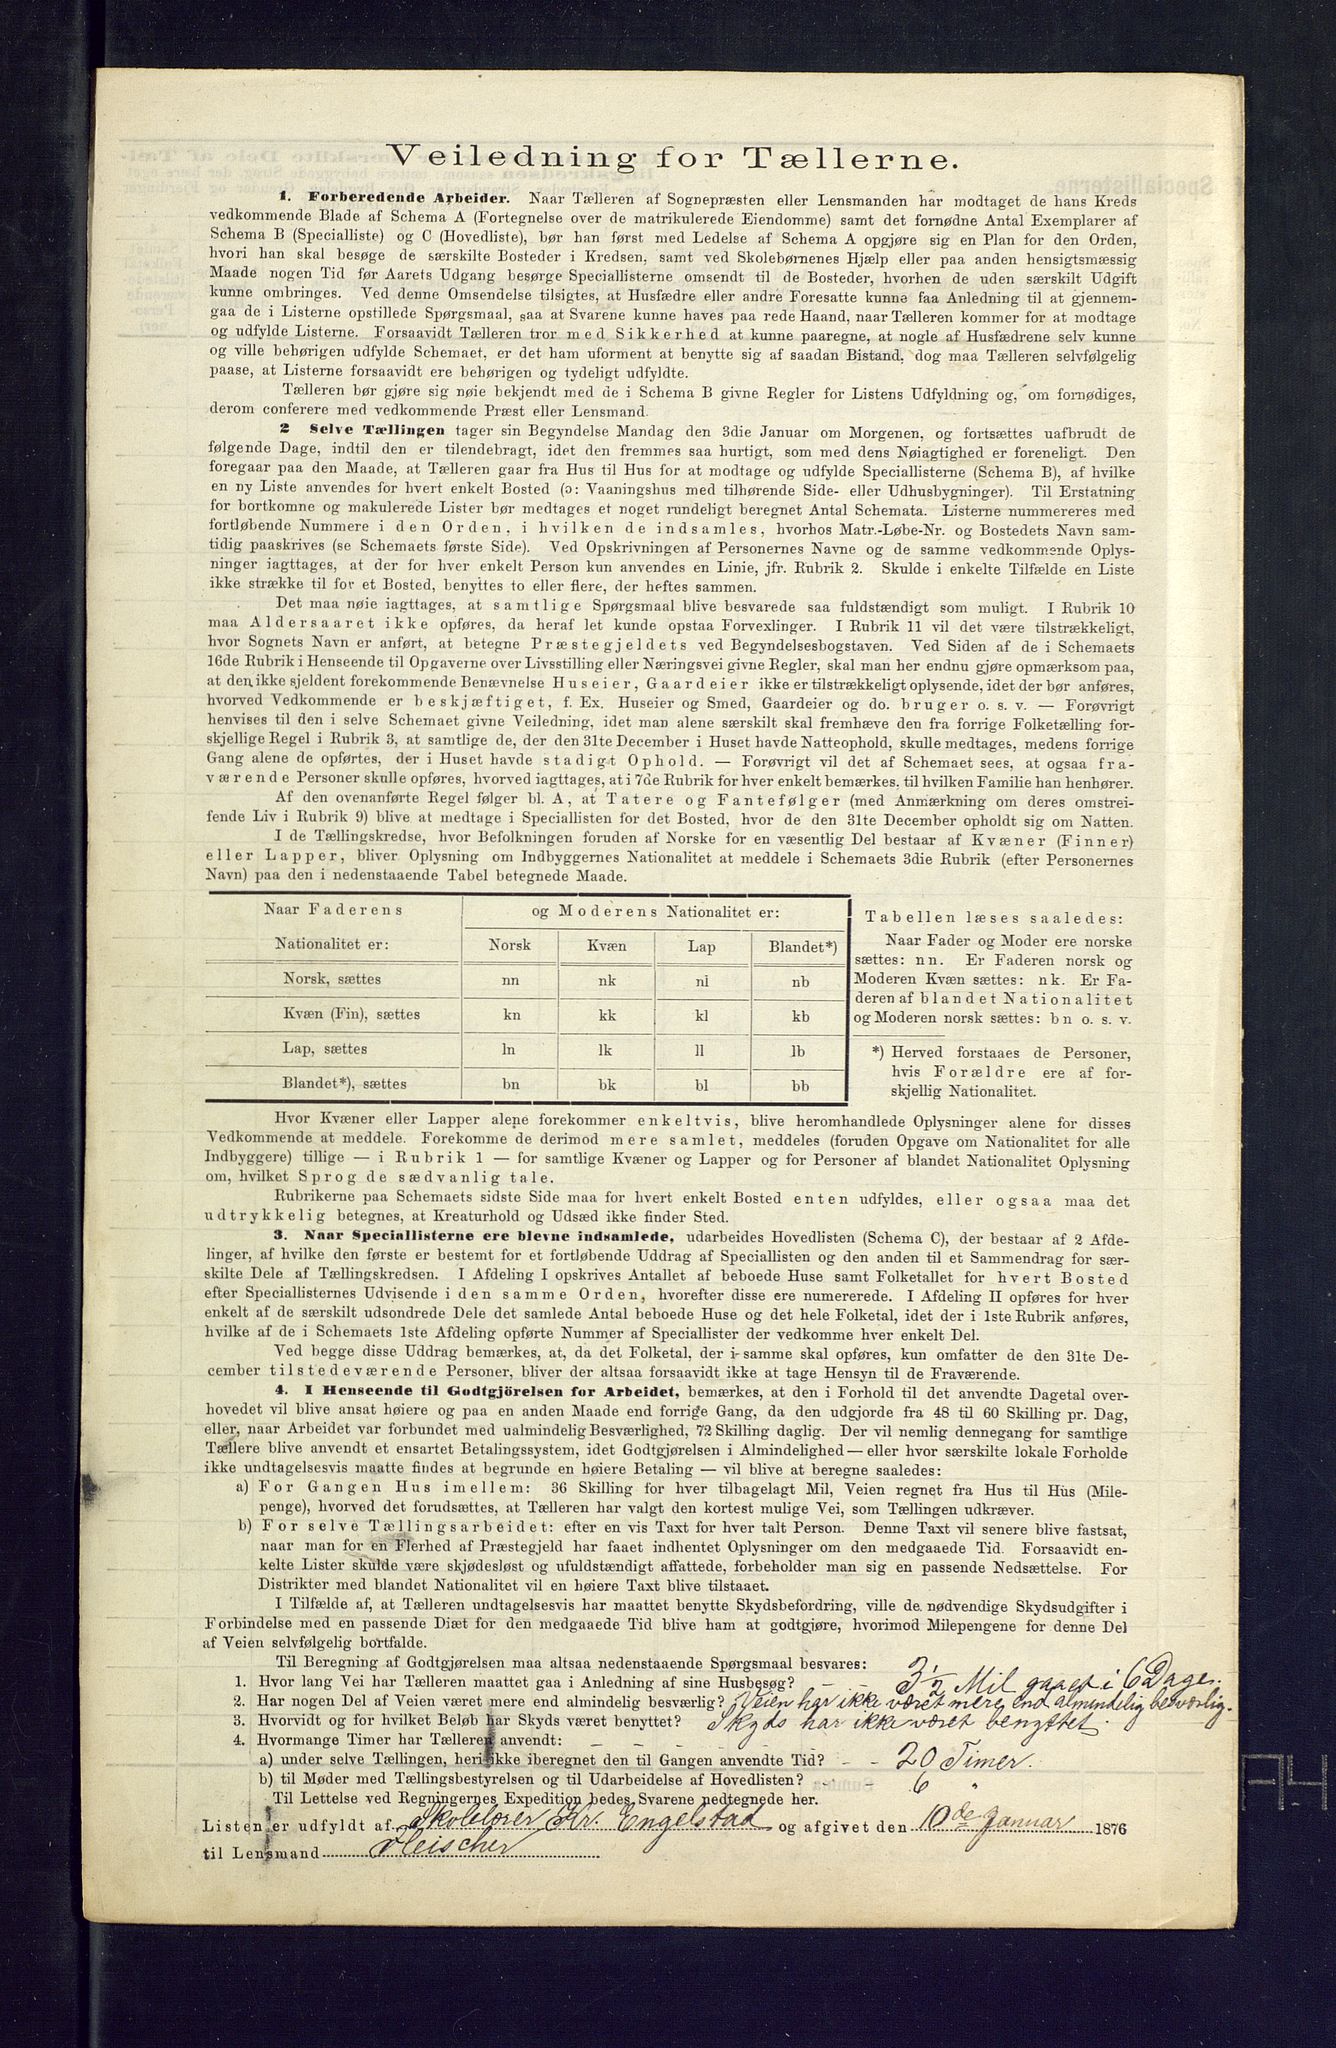 Veiledning for Tællerne.
1. Forberedende Arbeider. Naar Tælleren af Sognepræsten eller Lensmanden har modtaget de hans Kreds
vedkommende Blade af Schema A (Fortegnelse over de matrikulerede Eiendomme) samt det fornødne Antal Exemplarer af
Schema B (Specialliste) og C (Hovedliste), bør han først med Ledelse af Schema A opgjøre sig en Plan for den Orden,
hvori han skal besøge de særskilte Bosteder i Kredsen, samt ved Skolebørnenes Hjælp eller paa anden hensigtsmæssig
Maade nogen Tid før Aarets Udgang besørge Speciallisterne omsendt til de Bosteder, hvorhen de uden særskilt Udgift
kunne ombringes. Ved denne Omsendelse tilsigtes, at Husfædre eller andre Foresatte kunne faa Anledning til at gjennem-
gaa de i Listerne opstillede Spørgsmaal, saa at Svarene kunne haves paa rede Haand, naar Tælleren kommer for at modtage
og udfylde Listerne. Forsaavidt Tælleren tror med Sikkerhed at kunne paaregne, at nogle af Husfædrene selv kunne
og ville behørigen udfylde Schemaet, er det ham uforment at benytte sig af saadan Bistand, dog maa Tælleren selvfølgelig
paase, at Listerne forsaavidt ere behørigen og tydeligt udfyldte.
Tælleren bør gjøre sig nøie bekjendt med de i Schema B givne Regler for Listens Udfyldning og, om fornødiges,
derom conferere med vedkommende Præst eller Lensmand.
2 Selve Tællingen tager sin Begyndelse Mandag den 3die Januar om Morgenen, og fortsættes uafbrudt de
følgende Dage, indtil den er tilendebragt, idet den fremmes saa hurtigt, som med dens Nøiagtighed er foreneligt. Den
foregaar paa den Maade, at Tælleren gaar fra Hus til Hus for at modtage og udfylde Speciallisterne (Schema B), af hvilke
en ny Liste anvendes for hvert enkelt Bosted (ɔ: Vaaningshus med tilhørende Side- eller Udhusbygninger). Til Erstatning
for bortkomne og makulerede Lister bør medtages et noget rundeligt beregnet Antal Schemata. Listerne nummereres med
fortløbende Nummere i den Orden, i hvilken de indsamles, hvorhos Matr.-Løbe-Nr. og Bostedets Navn sam-
tidig paaskrives (se Schemaets første Side). Ved Opskrivningen af Personernes Navne og de samme vedkommende Oplys-
ninger iagttages, at der for hver enkelt Person kun anvendes en Linie, jfr. Rubrik 2. Skulde i enkelte Tilfælde en Liste
ikke strække til for et Bosted, benyttes to eller flere, der heftes sammen.
Det maa nøie iagttages, at samtlige Spørgsmaal blive besvarede saa fuldstændigt som muligt. I Rubrik 10
maa Aldersaaret ikke opføres, da heraf let kunde opstaa Forvexlinger. I Rubrik 11 vil det være tilstrækkeligt,
hvor Sognets Navn er anført, at betegne Præstegjeldets ved Begyndelsesbogstaven. Ved Siden af de i Schemaets
16de Rubrik i Henseende til Opgaverne over Livsstilling eller Næringsvei givne Regler, skal man her endnu gjøre opmærksom paa,
at den ikke sjeldent forekommende Benævnelse Huseier, Gaardeier ikke er tilstrækkeligt oplysende, idet der bør anføres,
hvorved Vedkommende er beskjæftiget, f. Ex. Huseier og Smed, Gaardeier og do. bruger o. s. v. — Forøvrigt
henvises til den i selve Schemaet givne Veiledning, idet man alene særskilt skal fremhæve den fra forrige Folketælling for-
skjellige Regel i Rubrik 3, at samtlige de, der den 31te December i Huset havde Natteophold, skulle medtages, medens forrige
Gang alene de opførtes, der i Huset havde stadigt Ophold. — Forøvrigt vil det af Schemaet sees, at ogsaa fra-
værende Personer skulle opføres, hvorved iagttages, at i 7de Rubrik for hver enkelt bemærkes, til hvilken Familie han henhører.
Af den ovenanførte Regel følger bl. A, at Tatere og Fantefølger (med Anmærkning om deres omstrei-
fende Liv i Rubrik 9) blive at medtage i Speciallisten for det Bosted, hvor de den 31te December opholdt sig om Natten.
I de Tællingskredse, hvor Befolkningen foruden af Norske for en væsentlig Del bestaar af Kvæner (Finner)
eller Lapper, bliver Oplysning om Indbyggernes Nationalitet at meddele i Schemaets 3die Rubrik (efter Personernes
Navn) paa den i nedenstaaende Tabel betegnede Maade.
Naar Faderens og Moderens Nationalitet er:
Nationalitet er: Norsk Kvæn Lap Blandet*)
Norsk, sættes nn nk nl nb
Kvæn (Fin), sættes kn kk kl kb
Lap, sættes ln lk ll lb
Blandet*), sættes bn bk bl bb
Tabellen læses saaledes:
Naar Fader og Moder ere norske
sættes: nn. Er Faderen norsk og
Moderen Kvæn sættes: nk. Er Fa-
deren af blandet Nationalitet
og Moderen norsk sættes: bn o. s. v.
*) Herved forstaaes de Personer,
hvis Forældre ere af for-
skjellig Nationalitet.
Hvor Kvæner eller Lapper alene forekommer enkeltvis, blive heromhandlede Oplysninger alene for disses
Vedkommende at meddele. Forekomme de derimod mere samlet, meddeles (foruden Opgave om Nationalitet for alle
Indbyggere) tillige — i Rubrik 1 — for samtlige Kvæner og Lapper og for Personer af blandet Nationalitet Oplysning
om, hvilket Sprog de sædvanlig tale.
Rubrikerne paa Schemaets sidste Side maa for hvert enkelt Bosted enten udfyldes, eller ogsaa maa det
udtrykkelig betegnes, at Kreaturhold og Udsæd ikke finder Sted.
3. Naar Speciallisterne ere blevne indsamlede, udarbeides Hovedlisten (Schema C), der bestaar af 2 Afde-
linger, af hvilke den første er bestemt for et fortløbende Uddrag af Speciallisten og den anden til et Sammendrag for sær-
skilte Dele af Tællingskredsen. I Afdeling I opskrives Antallet af beboede Huse samt Folketallet for hvert Bosted
efter Speciallisternes Udvisende i den samme Orden, hvorefter disse ere numererede. I Afdeling II opføres for hver
enkelt af de særskilt udsondrede Dele det samlede Antal beboede Huse og det hele Folketal, idet der i 1ste Rubrik anføres,
hvilke af de i Schemaets 1ste Afdeling opførte Nummer af Speciallister der vedkomme hver enkelt Del.
Ved begge disse Uddrag bemærkes, at, da det Folketal, der i samme skal opføres, kun omfatter de den 31te De-
cember tilstedeværende Personer, bliver der altsaa forsaavidt ikke at tage Hensyn til de Fraværende.
4. I Henseende til Godtgjörelsen for Arbeidet, bemærkes, at den i Forhold til det anvendte Dagetal over-
hovedet vil blive ansat høiere og paa en anden Maade end forrige Gang, da den udgjorde fra 48 til 60 Skilling pr. Dag,
eller, naar Arbeidet var forbundet med ualmindelig Besværlighed, 72 Skilling daglig. Der vil nemlig dennegang for samtlige
Tællere blive anvendt et ensartet Betalingssystem, idet Godtgjørelsen i Almindelighed — eller hvor særskilte lokale Forholde
ikke undtagelsesvis maatte findes at begrunde en høiere Betaling — vil blive at beregne saaledes:
a) For Gangen Hus imellem: 36 Skilling for hver tilbagelagt Mil, Veien regnet fra Hus til Hus (Mile-
penge), hvorved det forudsættes, at Tælleren har valgt den kortest mulige Vei, som Tællingen udkræver.
b) For selve Tællingsarbeidet: efter en vis Taxt for hver talt Person. Denne Taxt vil senere blive fastsat,
naar man for en Flerhed af Præstegjeld har faaet indhentet Oplysninger om den medgaaede Tid. Forsaavidt en-
kelte Lister skulde være skjødesløst og ufuldstændigt affattede, forbeholder man sig en passende Nedsættelse. For
Distrikter med blandet Nationalitet vil en høiere Taxt blive tilstaaet.
I Tilfælde af, at Tælleren undtagelsesvis har maattet benytte Skydsbefordring, ville de nødvendige Skydsudgifter i
Forbindelse med en passende Diæt for den medgaaede Tid blive ham at godtgjøre, hvorimod Milepengene for denne Del
af Veien selvfølgelig bortfalde.
Til Beregning af Godtgjørelsen maa altsaa nedenstaaende Spørgsmaal besvares:
1. Hvor lang Vei har Tælleren maattet gaa i Anledning af sine Husbesøg? — 3½ Mil gaaet i 6 Dage.
2. Har nogen Del af Veien været mere end almindelig besværlig? Veien har ikke været mere end almindelig besværlig.
3. Hvorvidt og for hvilket Beløb har Skyds været benyttet? Skyds har ikke været benyttet.
4. Hvormange Timer har Tælleren anvendt:
a) under selve Tællingen, heri ikke iberegnet den til Gangen anvendte Tid? - - 20 Timer.
b) til Møder med Tællingsbestyrelsen og til Udarbeidelse af Hovedlisten? - - 6 "
Til Lettelse ved Regningernes Expedition bedes Svarene nedtegnede her.
Listen er udfyldt af Skolelærer Kr. Engelstad og afgivet den 10de Januar 1876
til Lensmand Fleischer